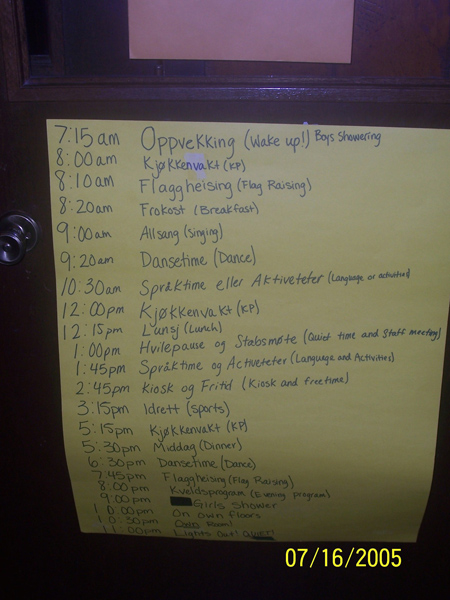 7:15am Oppvekking (Wake up!) Boys Showering
8:00am Kjøkkenvakt (KP)
8:10am Flaggheising (Flag Raising)
8:20am Frokost (Breakfast)
9:00am Allsang (Singing)
9:20am Dansetime (Dance)
10:30am Språktime eller Aktiveteter (Language or activities)
12:00pm Kjøkkenvakt (KP)
12:15pm Lunsj (Lunch)
1:00pm Hvilepause og Stabsmøte (Quiet time and Staff meeting)
1:45pm Språktime og Activeteter (Language and Activities)
2:45pm Kiosk og Fritid (Kiosk and freetime)
3:15pm Idrett (sports)
5:15pm Kjøkkenvakt (KP)
5:30pm Middag (Dinner)
6:30pm Dansetime (Dance)
7:45pm Flaggheising (Flag Raising)
8:00pm Kveldsprogram (Evening program)
9:00pm Girls Shower
10:00pm On own floors
10:30pm Room!
11:00pm Lights Out! Quiet!
07/16/2005